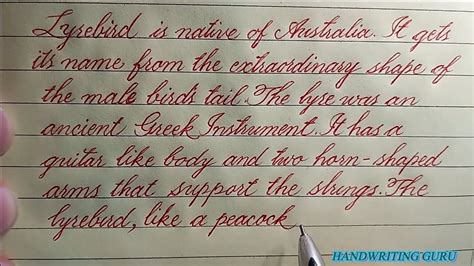 Lyrebird is native of Australia. It gets
its name from the extraordinary shape of
the male birds tail. The lyse was an
ancient Greek Instrument. It has a
guitar like body and two horn-shaped
arms that support the strings. The
lyrebird, like a peacock
HANDWRITING GURU